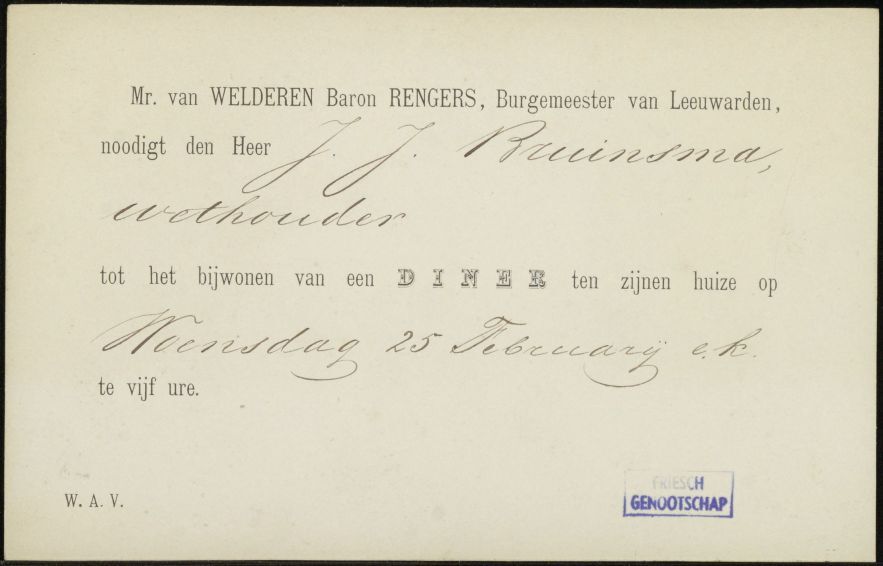 Mr. van WELDEREN Baron RENGERS, Burgemeester van Leeuwarden,
noodigt den Heer J. J. Bruinsma,
wethouder
tot het bijwonen van een DINER ten zijnen huize op
Woensdag 25 Februarij e.k.
te vijf ure.
W. A. V.
FRIESCH
GENOOTSCHAP